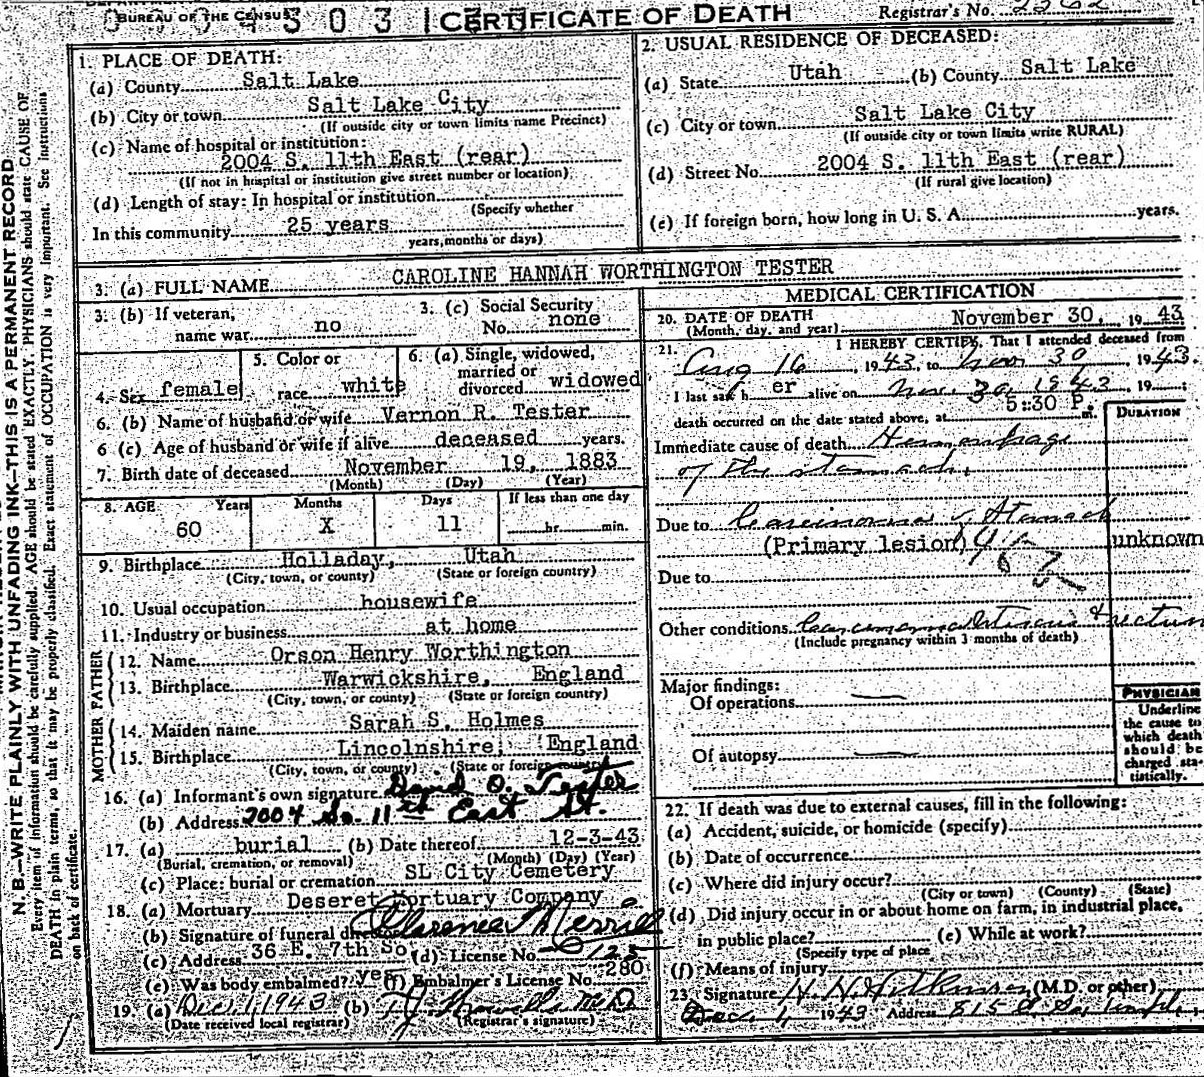 BUREAU OF THE CENSUS
CERTIFICATE OF DEATH
Registrar's No.
N. B.—WRITE PLAINLY WITH UNFADING INK—THIS IS A PERMANENT RECORD
Every item of information should be carefully supplied. AGE should be stated EXACTLY. PHYSICIANS should state CAUSE OF
DEATH in plain terms, so that it may be properly classified. Exact statement of OCCUPATION is very important. See instructions
on back of certificate.
1. PLACE OF DEATH:
(a) County Salt Lake
(b) City or town Salt Lake City
(If outside city or town limits name Precinct)
(c) Name of hospital or institution:
2004 S. 11th East (rear)
(If not in hospital or institution give street number or location)
(d) Length of stay: In hospital or institution
(Specify whether
In this community 25 years
years, months or days)
2. USUAL RESIDENCE OF DECEASED:
(a) State Utah (b) County Salt Lake
(c) City or town Salt Lake City
(If outside city or town limits write RURAL)
(d) Street No. 2004 S. 11th East (rear)
(If rural give location)
(e) If foreign born, how long in U. S. A. years.
3. (a) FULL NAME CAROLINE HANNAH WORTHINGTON TESTER
3. (b) If veteran,
name war no
3. (c) Social Security
No. none
4. Sex female
5. Color or
race white
6. (a) Single, widowed,
married or
divorced widowed
6. (b) Name of husband or wife Vernon R. Tester
6 (c) Age of husband or wife if alive deceased years.
7. Birth date of deceased November 19, 1883
(Month) (Day) (Year)
8. AGE Years Months Days If less than one day
60 X 11 hr. min.
9. Birthplace Holladay, Utah
(City, town, or county) (State or foreign country)
10. Usual occupation housewife
11. Industry or business at home
FATHER
12. Name Orson Henry Worthington
13. Birthplace Warwickshire, England
(City, town, or county) (State or foreign country)
MOTHER
14. Maiden name Sarah S. Holmes
15. Birthplace Lincolnshire, England
(City, town, or county) (State or foreign country)
16. (a) Informant's own signature David O. Tester
(b) Address 2004 So. 11th East St.
17. (a) burial (b) Date thereof 12-3-43
(Burial, cremation, or removal) (Month) (Day) (Year)
(c) Place: burial or cremation SL City Cemetery
18. (a) Mortuary Deseret Mortuary Company
(b) Signature of funeral director Clarence Merrill
(c) Address 36 E. 7th So. (d) License No. 125
(e) Was body embalmed? yes (f) Embalmer's License No. 280
19. (a) Dec. 1, 1943 (b)
(Date received local registrar) (Registrar's signature)
MEDICAL CERTIFICATION
20. DATE OF DEATH November 30, 1943
(Month, day, and year)
21. I HEREBY CERTIFY, That I attended deceased from
Aug 16, 1943, to Nov 30, 1943
I last saw her alive on Nov. 30, 1943, 19
death occurred on the date stated above, at 5:30 P. m.
DURATION
Immediate cause of death Hemorrhage
of the stomach.
Due to Carcinoma Stomach
(Primary lesion) unknown
Due to
Other conditions Carcinoma Uterus & rectum
(Include pregnancy within 3 months of death)
Major findings:
Of operations
Of autopsy
PHYSICIAN
Underline
the cause to
which death
should be
charged sta-
tistically.
22. If death was due to external causes, fill in the following:
(a) Accident, suicide, or homicide (specify)
(b) Date of occurrence
(c) Where did injury occur?
(City or town) (County) (State)
(d) Did injury occur in or about home on farm, in industrial place,
in public place? (e) While at work?
(Specify type of place
(f) Means of injury
23. Signature (M.D. or other)
Dec 1, 1943 Address